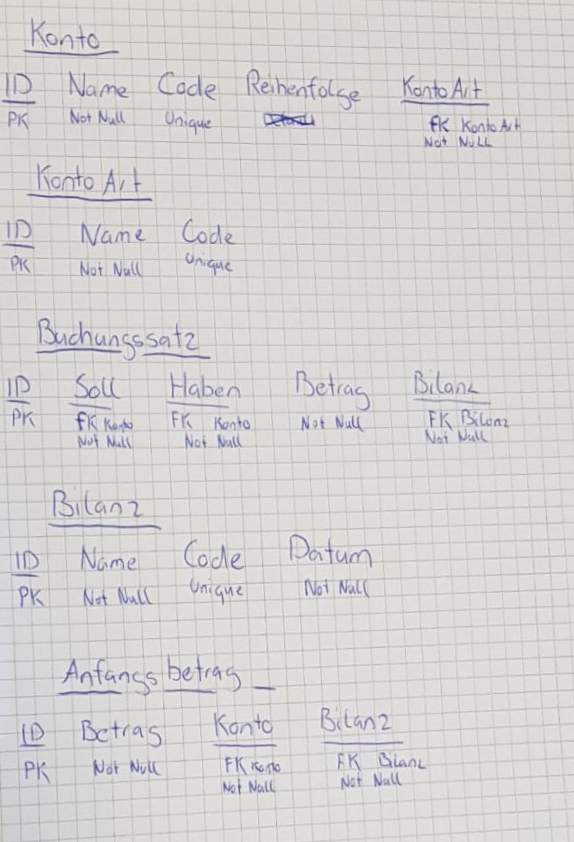 Konto
ID Name Code Reihenfolge Konto Art
PK Not Null Unique FK Konto Art
Not Null
Konto Art
ID Name Code
PK Not Null Unique
Buchungssatz
ID Soll Haben Betrag Bilanz
PK FK Konto FK Konto Not Null FK Bilanz
Not Null Not Null Not Null
Bilanz
ID Name Code Datum
PK Not Null Unique Not Null
Anfangsbetrag
ID Betrag Konto Bilanz
PK Not Null FK Konto FK Bilanz
Not Null Not Null